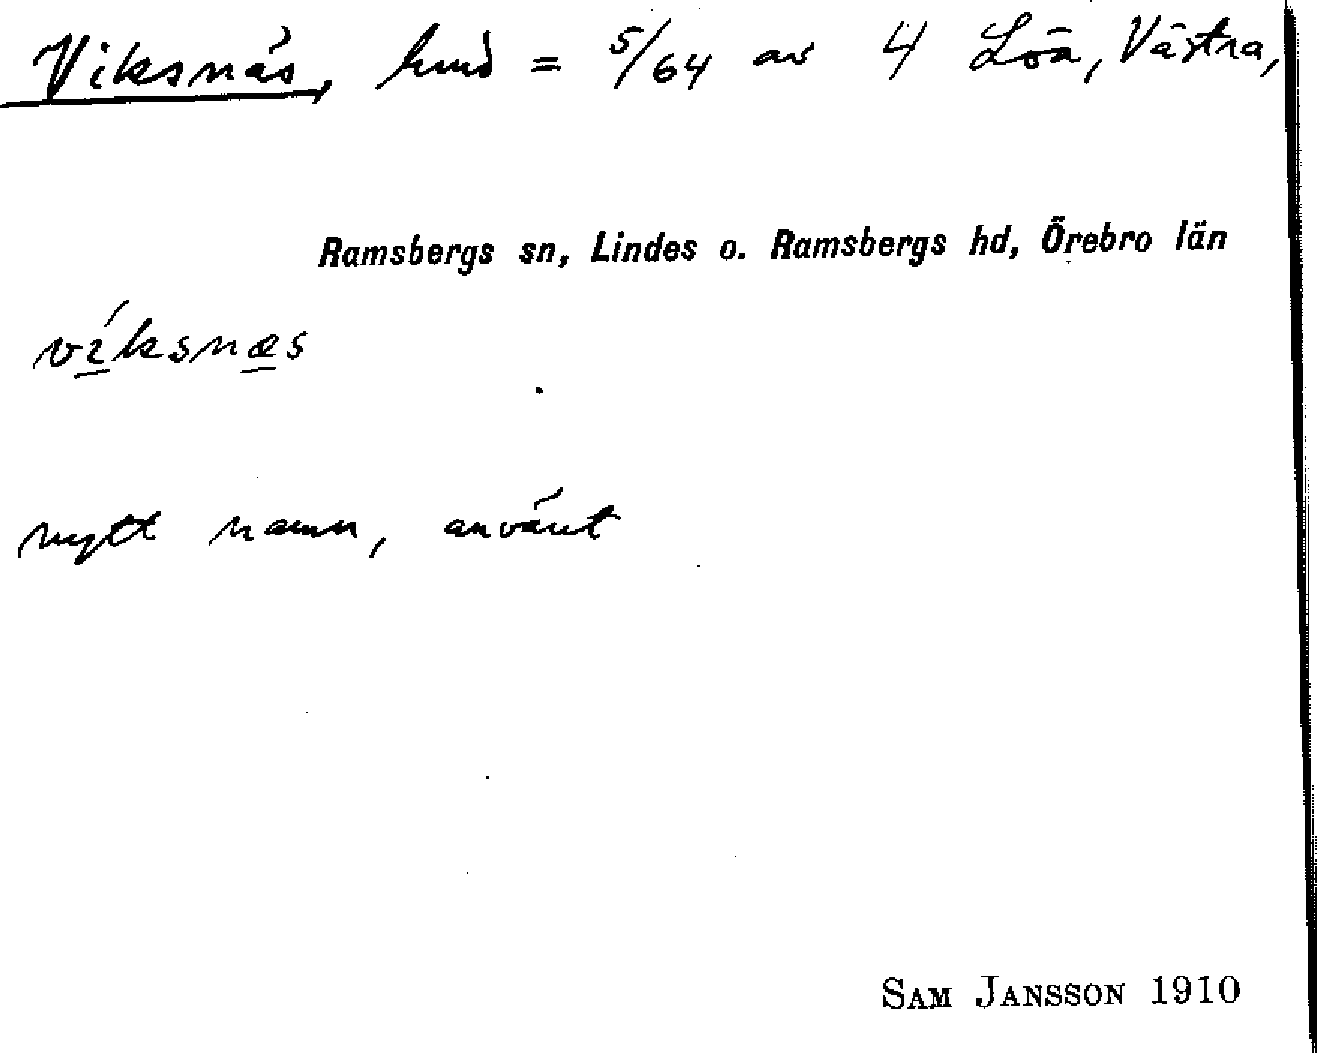 Viksnäs, hmd = 5/64 av 4 Löa, Västra,
Ramsbergs sn, Lindes o. Ramsbergs hd, Örebro län
víksnæs
nytt namn, använt
SAM JANSSON 1910